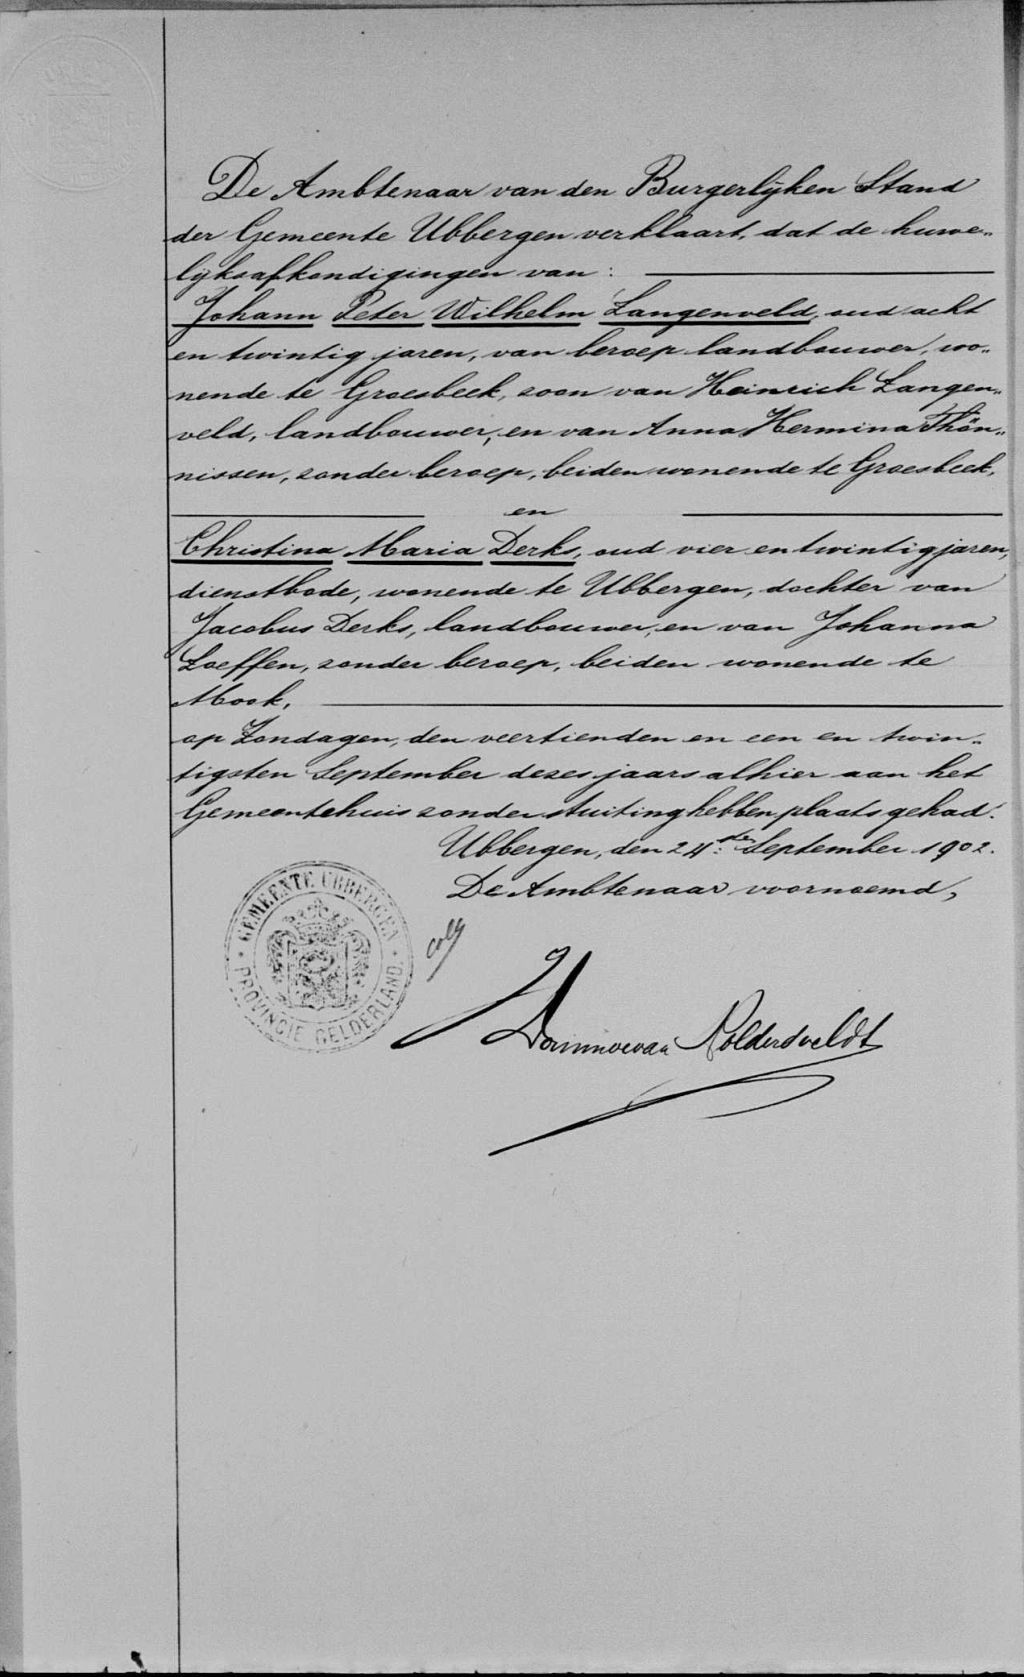 De Ambtenaar van den Burgerlijken Stand
der Gemeente Ubbergen verklaart, dat de huwe„
lijksafkondigingen van:
Johann Peter Wilhelm Langenveld, oud acht
en twintig jaren, van beroep landbouwer, wo„
nende te Groesbeek, zoon van Heinrich Langen„
veld, landbouwer, en van Anna Hermina Thön„
nissen, zonder beroep, beiden wonende te Groesbeek,
en
Christina Maria Derks, oud vier en twintig jaren,
dienstbode, wonende te Ubbergen, dochter van
Jacobus Derks, landbouwer, en van Johanna
Loeffen, zonder beroep, beiden wonende te
Mook,
op Zondagen, den veertienden en een en twin„
tigsten September dezes jaars alhier aan het
Gemeentehuis zonder stuiting hebben plaats gehad.
Ubbergen, den 24sten September 1902.
De Ambtenaar voornoemd,
GEMEENTE UBBERGEN
PROVINCIE GELDERLAND.
van Noldersveldt